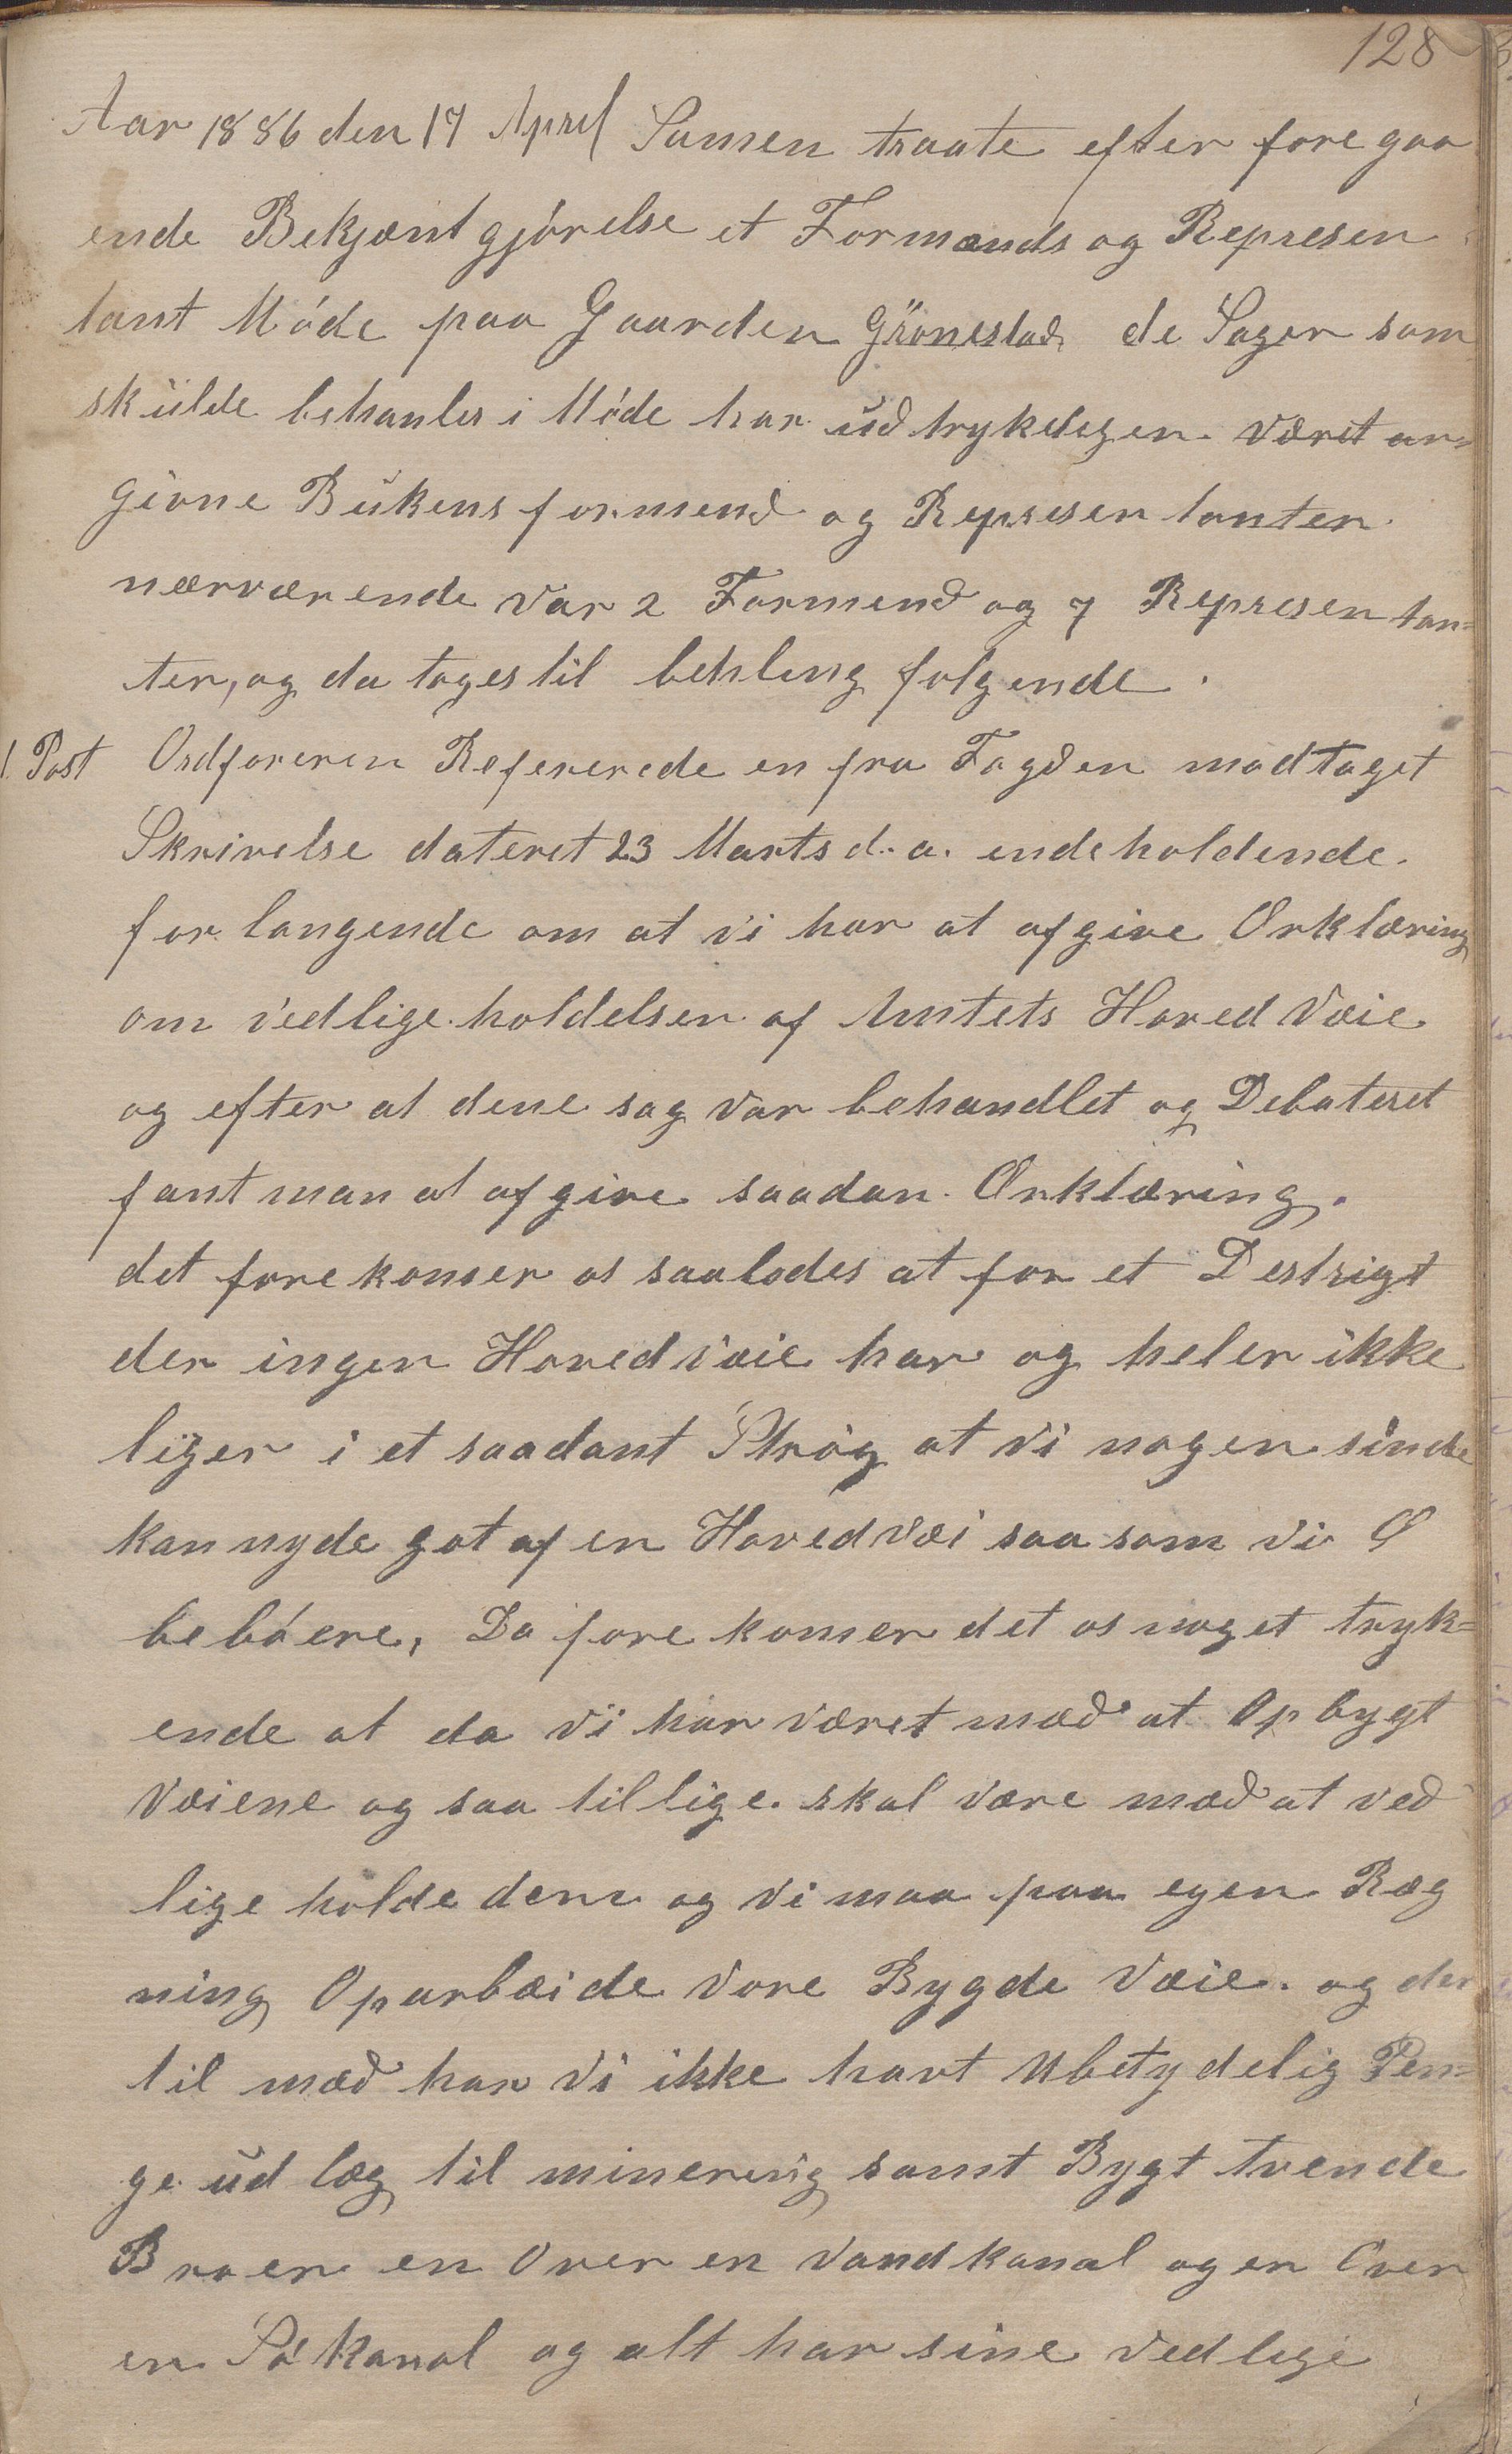 128
Aar 1886 den 17 April Samen traate efter fore gaa
ende Bekjent gjörelse et Formands og Represen
tant Möde paa Gaarden Grönestad de Sager som
skulde behanles i Möde har ud trykelegen været an=
givne Bukens formend og Represen tanter
nærværende var 2 Formend og 7 Represen tan=
ter, og da toges til behling folgende.
1. Post Ordforeren Refererede en fra Fogden modtaget
Skrivelse dateret 23 Marts d. a. endeholdende
for langende om at vi har at afgive Erklæring
om vedlige holdelsen af Amtets Hoved Væie
og efter at dene sag var behandlet og Debateret
fant man at afgive saadan Erklæring.
det fore komer os saalodes at for et Destrigt
der ingen Hoved væie har og heler ikke
liger i et saadant Strög at vi nogen sinde
kan nyde got af en Hovedvæi saa som vi Ö
beböere, Da fore komer det os noget tryk=
ende at da vi har været mæd at Opbygt
Væiene og saa tillige skal være mæd at ved
lige holde dem og vi maa paa egen Ræg
ning Oparbæide vore Bygde Væie. og der
til mæd har vi ikke havt Ubetydelig Pen=
ge ud læg til minering samt Bygt tvende
Broer en Over en Vandkanal og en Over
en Sökanal og alt har sine vedlige